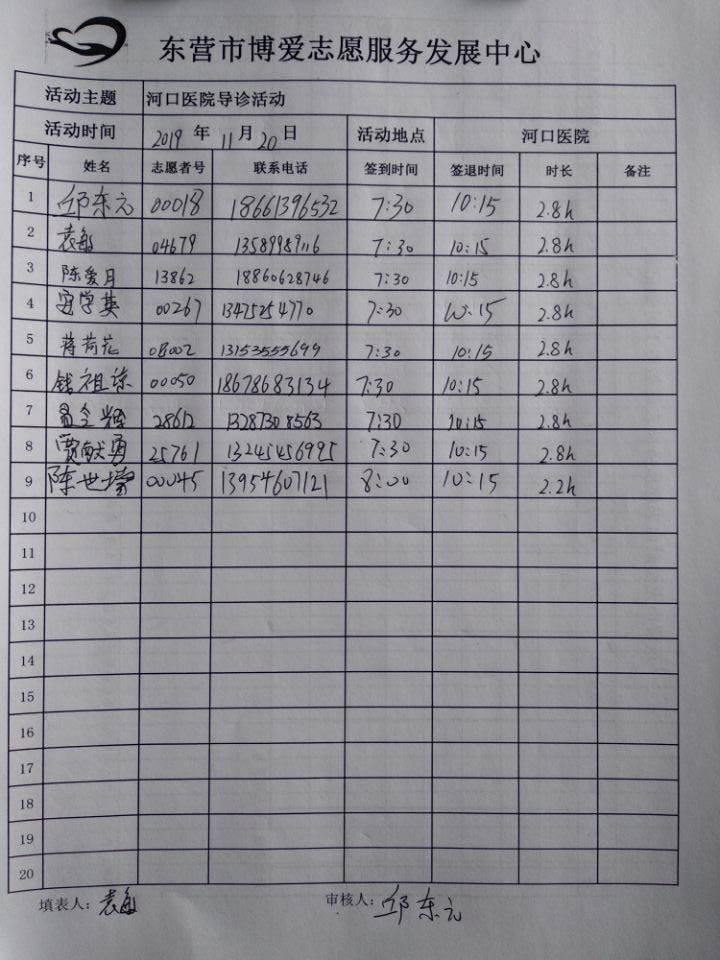 东营市博爱志愿服务发展中心
活动主题 河口医院导诊活动
活动时间 2019 年 11 月 20 日 活动地点 河口医院
序号 姓名 志愿者号 联系电话 签到时间 签退时间 时长 备注
1 邱东元 00018 18661396532 7:30 10:15 2.8h
2 袁敏 04679 13589989116 7:30 10:15 2.8h
3 陈爱月 13862 18860628746 7:30 10:15 2.8h
4 学英 00267 13475254770 7:30 10:15 2.8h
5 蒋荷花 08002 13153555699 7:30 10:15 2.8h
6 钱祖 00050 18678683134 7:30 10:15 2.8h
7 28612 13287308563 7:30 10:15 2.8h
8 贾献勇 25761 13245456995 7:30 10:15 2.8h
9 陈世 00045 13954607121 8:00 10:15 2.2h
10
11
12
13
14
15
16
17
18
19
20
填表人: 袁敏 审核人: 邱东元